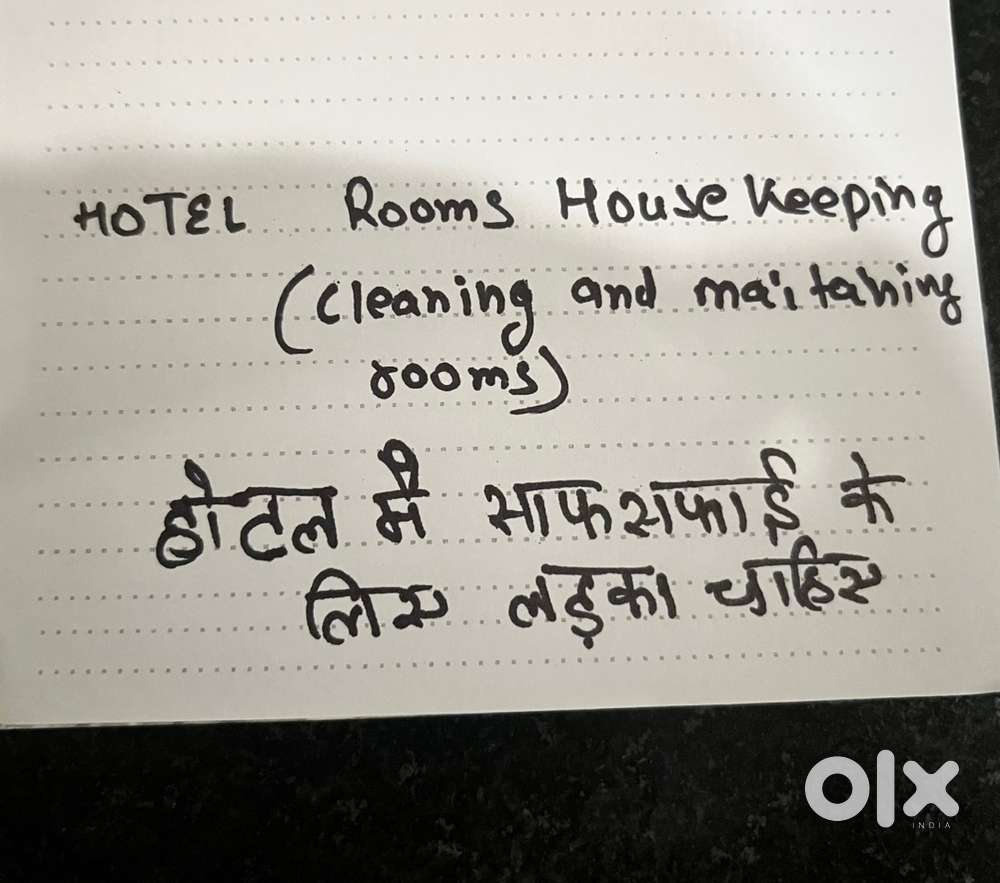 HOTEL Rooms House Keeping
(cleaning and maitaining
rooms)
होटल मै साफ सफाई के
लिए लड़का चाहिए
olx
INDIA